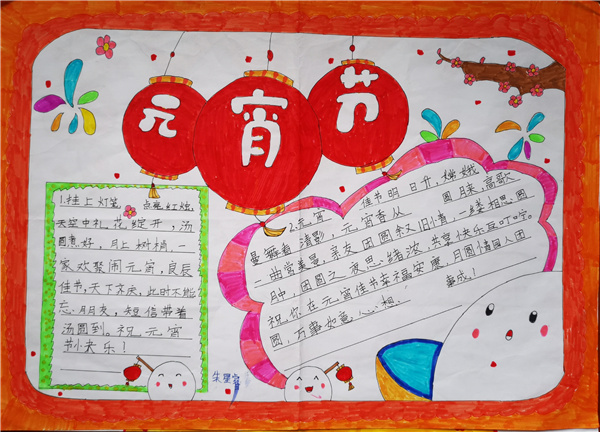 元宵节
1.挂上灯笼 点亮红烛,
天空中礼花绽开,汤
圆煮好,月上树梢,一
家欢聚闹元宵,良辰
佳节,天下同庆,此时不能
忘朋友,短信带着
汤圆到。祝元宵
节快乐!
2.元宵佳节明日开,嫦娥
曼舞着清影,元宵香从圆月来,高歌
一曲赏美景,亲友团圆叙旧情,一缕相思圆
月中,团圆之夜思绪浓,共享快乐互叮咛。
祝你在元宵佳节幸福安康,月圆情圆人团
圆,万事如意,心想事成!